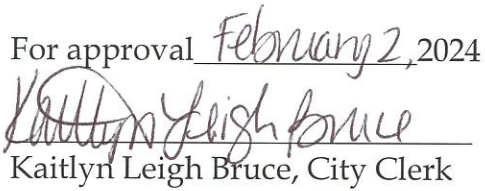 For approval February 2, 2024
Kaitlyn Leigh Bruce
Kaitlyn Leigh Bruce, City Clerk